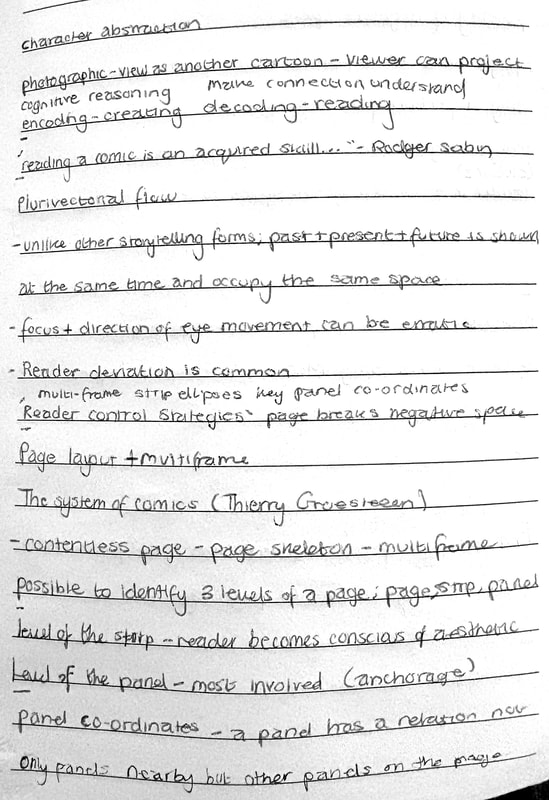 character abstraction
photographic - view as another cartoon - viewer can project
cognitive reasoning make connection understand
encoding - creating decoding - reading
"reading a comic is an acquired skill..." - Rodger Sabin
Plurivectorial flow
- unlike other storytelling forms; past + present + future is shown
at the same time and occupy the same space
- focus + direction of eye movement can be erratic
- Reader deviation is common
multi-frame strip ellipses key panel co-ordinates
Reader control strategies page breaks negative space
Page layout + multiframe
The system of comics (Thierry Groesteen)
- contentless page - page skeleton - multiframe
possible to identify 3 levels of a page; page, strip, panel
level of the strip - reader becomes conscius of aesthetic
Level of the panel - most involved (anchorage)
panel co-ordinates - a panel has a relation not
only panels nearby but other panels on the page